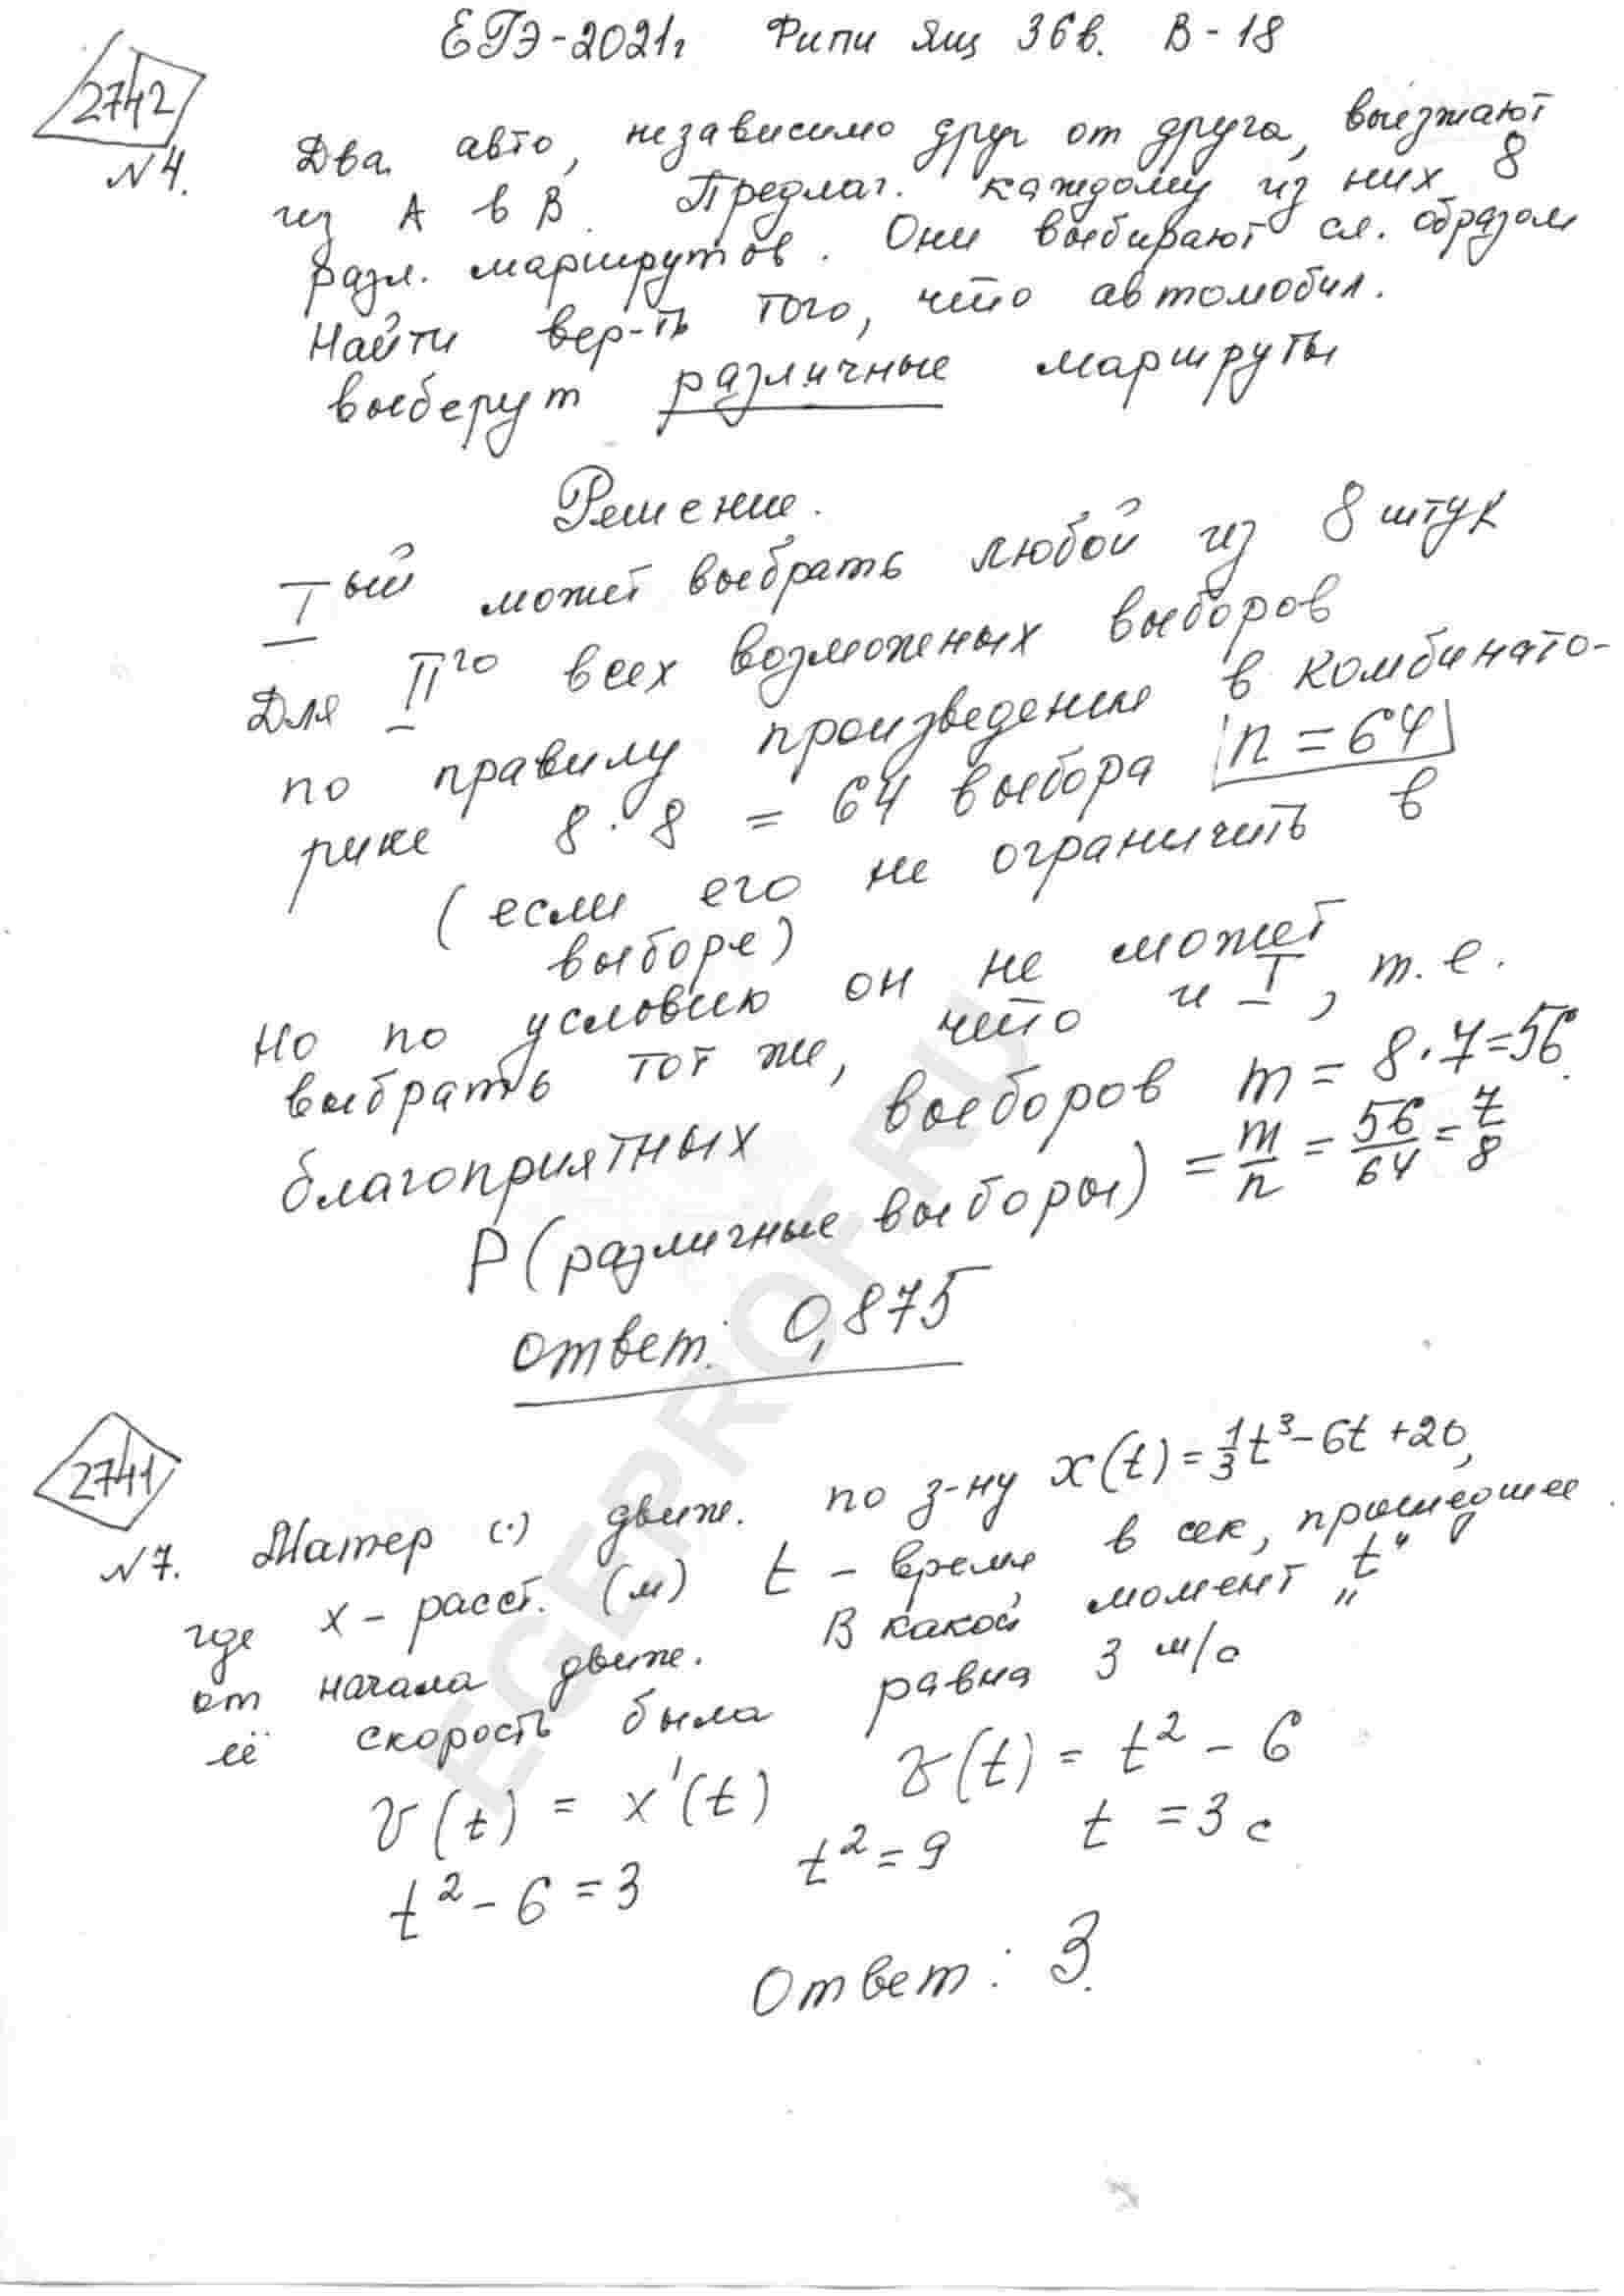 ЕГЭ-2021г Фипи Ящ 36в. В-18
2742
№4. Два авто, независимо друг от друга, выезжают
из А в В. Предлаг. каждому из них 8
разл. маршрутов. Они выбирают сл. образом
Найти вер-ть того, что автомобил.
выберут различные маршруты
Решение.
Iый может выбрать любой из 8 штук
Для IIго всех возможных выборов
по правилу произведения в комбинато-
рике 8·8 = 64 выбора n = 64
(если его не ограничить в
выборе)
Но по условию он не может
выбрать тот же, что и I, т.е.
благоприятных выборов m = 8·7=56.
P(различные выборы) = m/n = 56/64 = 7/8
ответ: 0,875
2741
№7. Матер (·) движ. по з-ну x(t) = 1/3 t³ - 6t + 20,
где x - расст. (м) t - время в сек, прошедшее
от начала движ. В какой момент „t"
её скорость была равна 3 м/с
v(t) = x'(t) v(t) = t² - 6
t² - 6 = 3 t² = 9 t = 3 с
Ответ: 3.
EGEPROF.RU